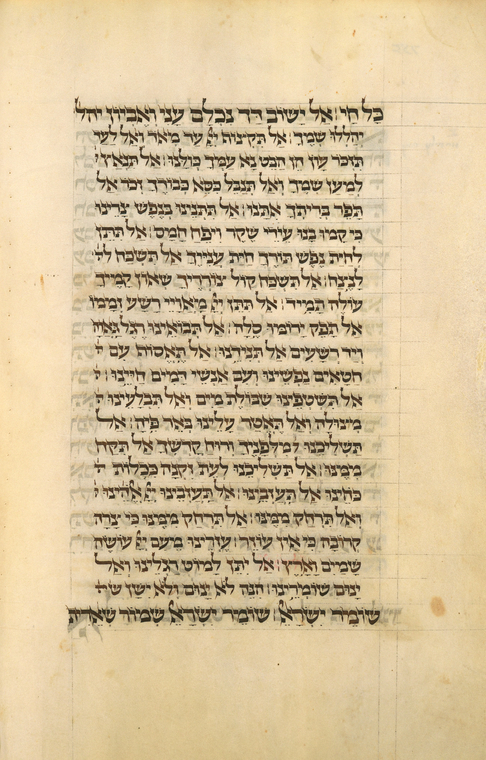 כל חי׃ אל ישוב דך נכלם עני ואביון יהלו
יהללו שמך׃ אל תקצוף יי עד מאד ואל לעד
תזכר עון הן הבט נא עמך כולנו׃ אל תנאץ
למען שמך ואל תנבל כסא כבודך זכר אל
תפר בריתך אתנו׃ אל תתנינו בנפש צרינו
כי קמו בנו עידי שקר ויפח חמס׃ אל תתן
לחית נפש תורך חית ענייך אל תשכח
לנצח׃ אל תשכח קול צורריך שאון קמיך
עולה תמיד׃ אל תתן יי מאויי רשע זממו
אל תפק ירומו סלה׃ אל תבואינו רגל גאוה
ויד רשעים אל תנידנו׃ אל תאסוף עם
חטאים נפשינו ועם אנשי דמים חיינו׃
אל תשטפינו שבולת מים ואל תבלעינו
מצולה ואל תאטר עלינו באר פיה׃ אל
תשליכנו מלפניך ורוח קדשך אל תקח
ממנו׃ אל תשליכנו לעת זקנה ככלות
כחנו אל תעזבינו׃ אל תעזבינו יי אלהינו
ואל תרחק ממנו׃ אל תרחק ממנו כי צרה
קרובה כי אין עוזר׃ עזרינו מעם יי עושה
שמים וארץ׃ אל יתן למוט רגלינו ואל
ינום שומרינו׃ הנה לא ינום ולא ישן
שומר ישראל׃ שומר ישראל שמור שארית